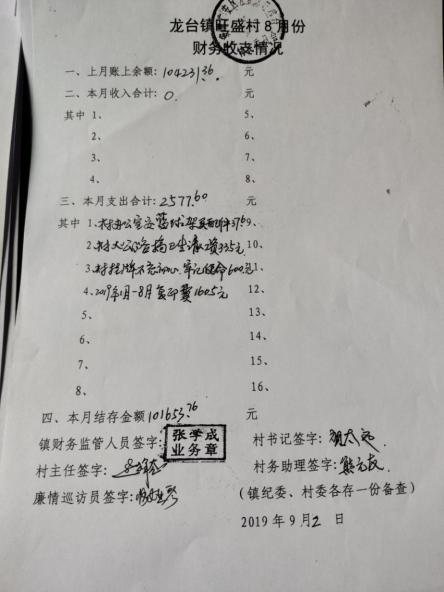 龙台镇旺盛村8月份
财务收支情况
一、上月账上余额:104231.36 元
二、本月收入合计:0. 元
其中 1、 5、
2、 6、
3、 7、
4、 8、
三、本月支出合计:2577.60 元
其中 1、村办公室安篮球架及配件 9、
2、村 卫生 335元 10、
3、村挂牌不忘初心,牢记使命600元 11、
4、2019年1月-8月复印费1605元 12、
5、 13、
6、 14、
7、 15、
8、 16、
四、本月结存金额101653.76 元
镇财务监管人员签字: 张学成 业务章 村书记签字:
村主任签字: 村务助理签字:
廉情巡访员签字: (镇纪委、村委各存一份备查)
2019年9月2日